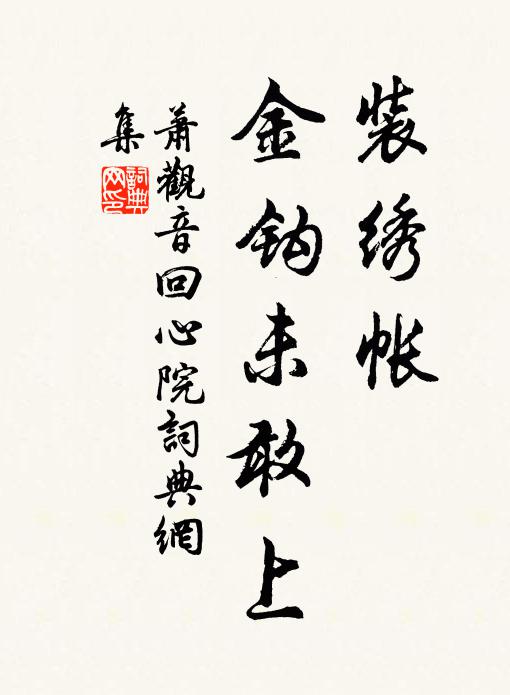 装绣帐
金钩未敢上
萧觀音回心院詞典網
集
詞典
网印